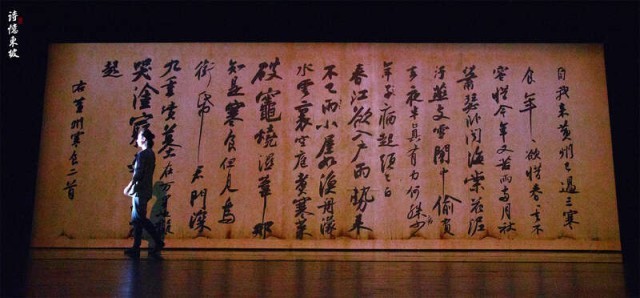 詩憶東坡
自我來黃州已過三寒
食年年欲惜春春去不
容惜今年又苦雨兩月秋
蕭瑟卧聞海棠花泥
汙燕支雪闇中偷負
去夜半真有力何殊少
年子病起須已白
春江欲入戶雨勢來
不已雨小屋如漁舟濛濛
水雲裏空庖煮寒菜
破竈燒濕葦那
知是寒食但見烏
銜帋君門深
九重墳墓在萬里也擬
哭塗窮
起
右黃州寒食二首